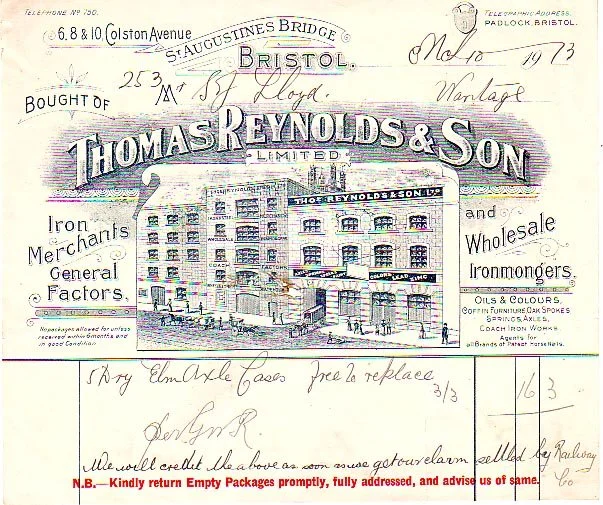 TELEPHONE No 750.
TELEGRAPHIC ADDRESS.
PADLOCK, BRISTOL.
6, 8 & 10, COLSTON AVENUE
ST AUGUSTINES BRIDGE
BRISTOL.
10 1913
253 Mr Lloyd. Wantage
BOUGHT OF
THOMAS REYNOLDS & SON
LIMITED
THOS REYNOLDS & SON, LTD
Iron
Merchants
General
Factors,
and
Wholesale
Ironmongers.
OILS & COLOURS,
COFFIN FURNITURE, OAK SPOKES
SPRINGS, AXLES,
COACH IRON WORKS.
Agents for
all Brands of Patent Horse Nails.
No packages allowed for unless
received within 6 months and
in good Condition
5 Dry Elm Axle Cases free to replace 3/3 16 3
per GWR.
We will credit the above as soon as we get our claim settled by Railway Co
N.B.—Kindly return Empty Packages promptly, fully addressed, and advise us of same.